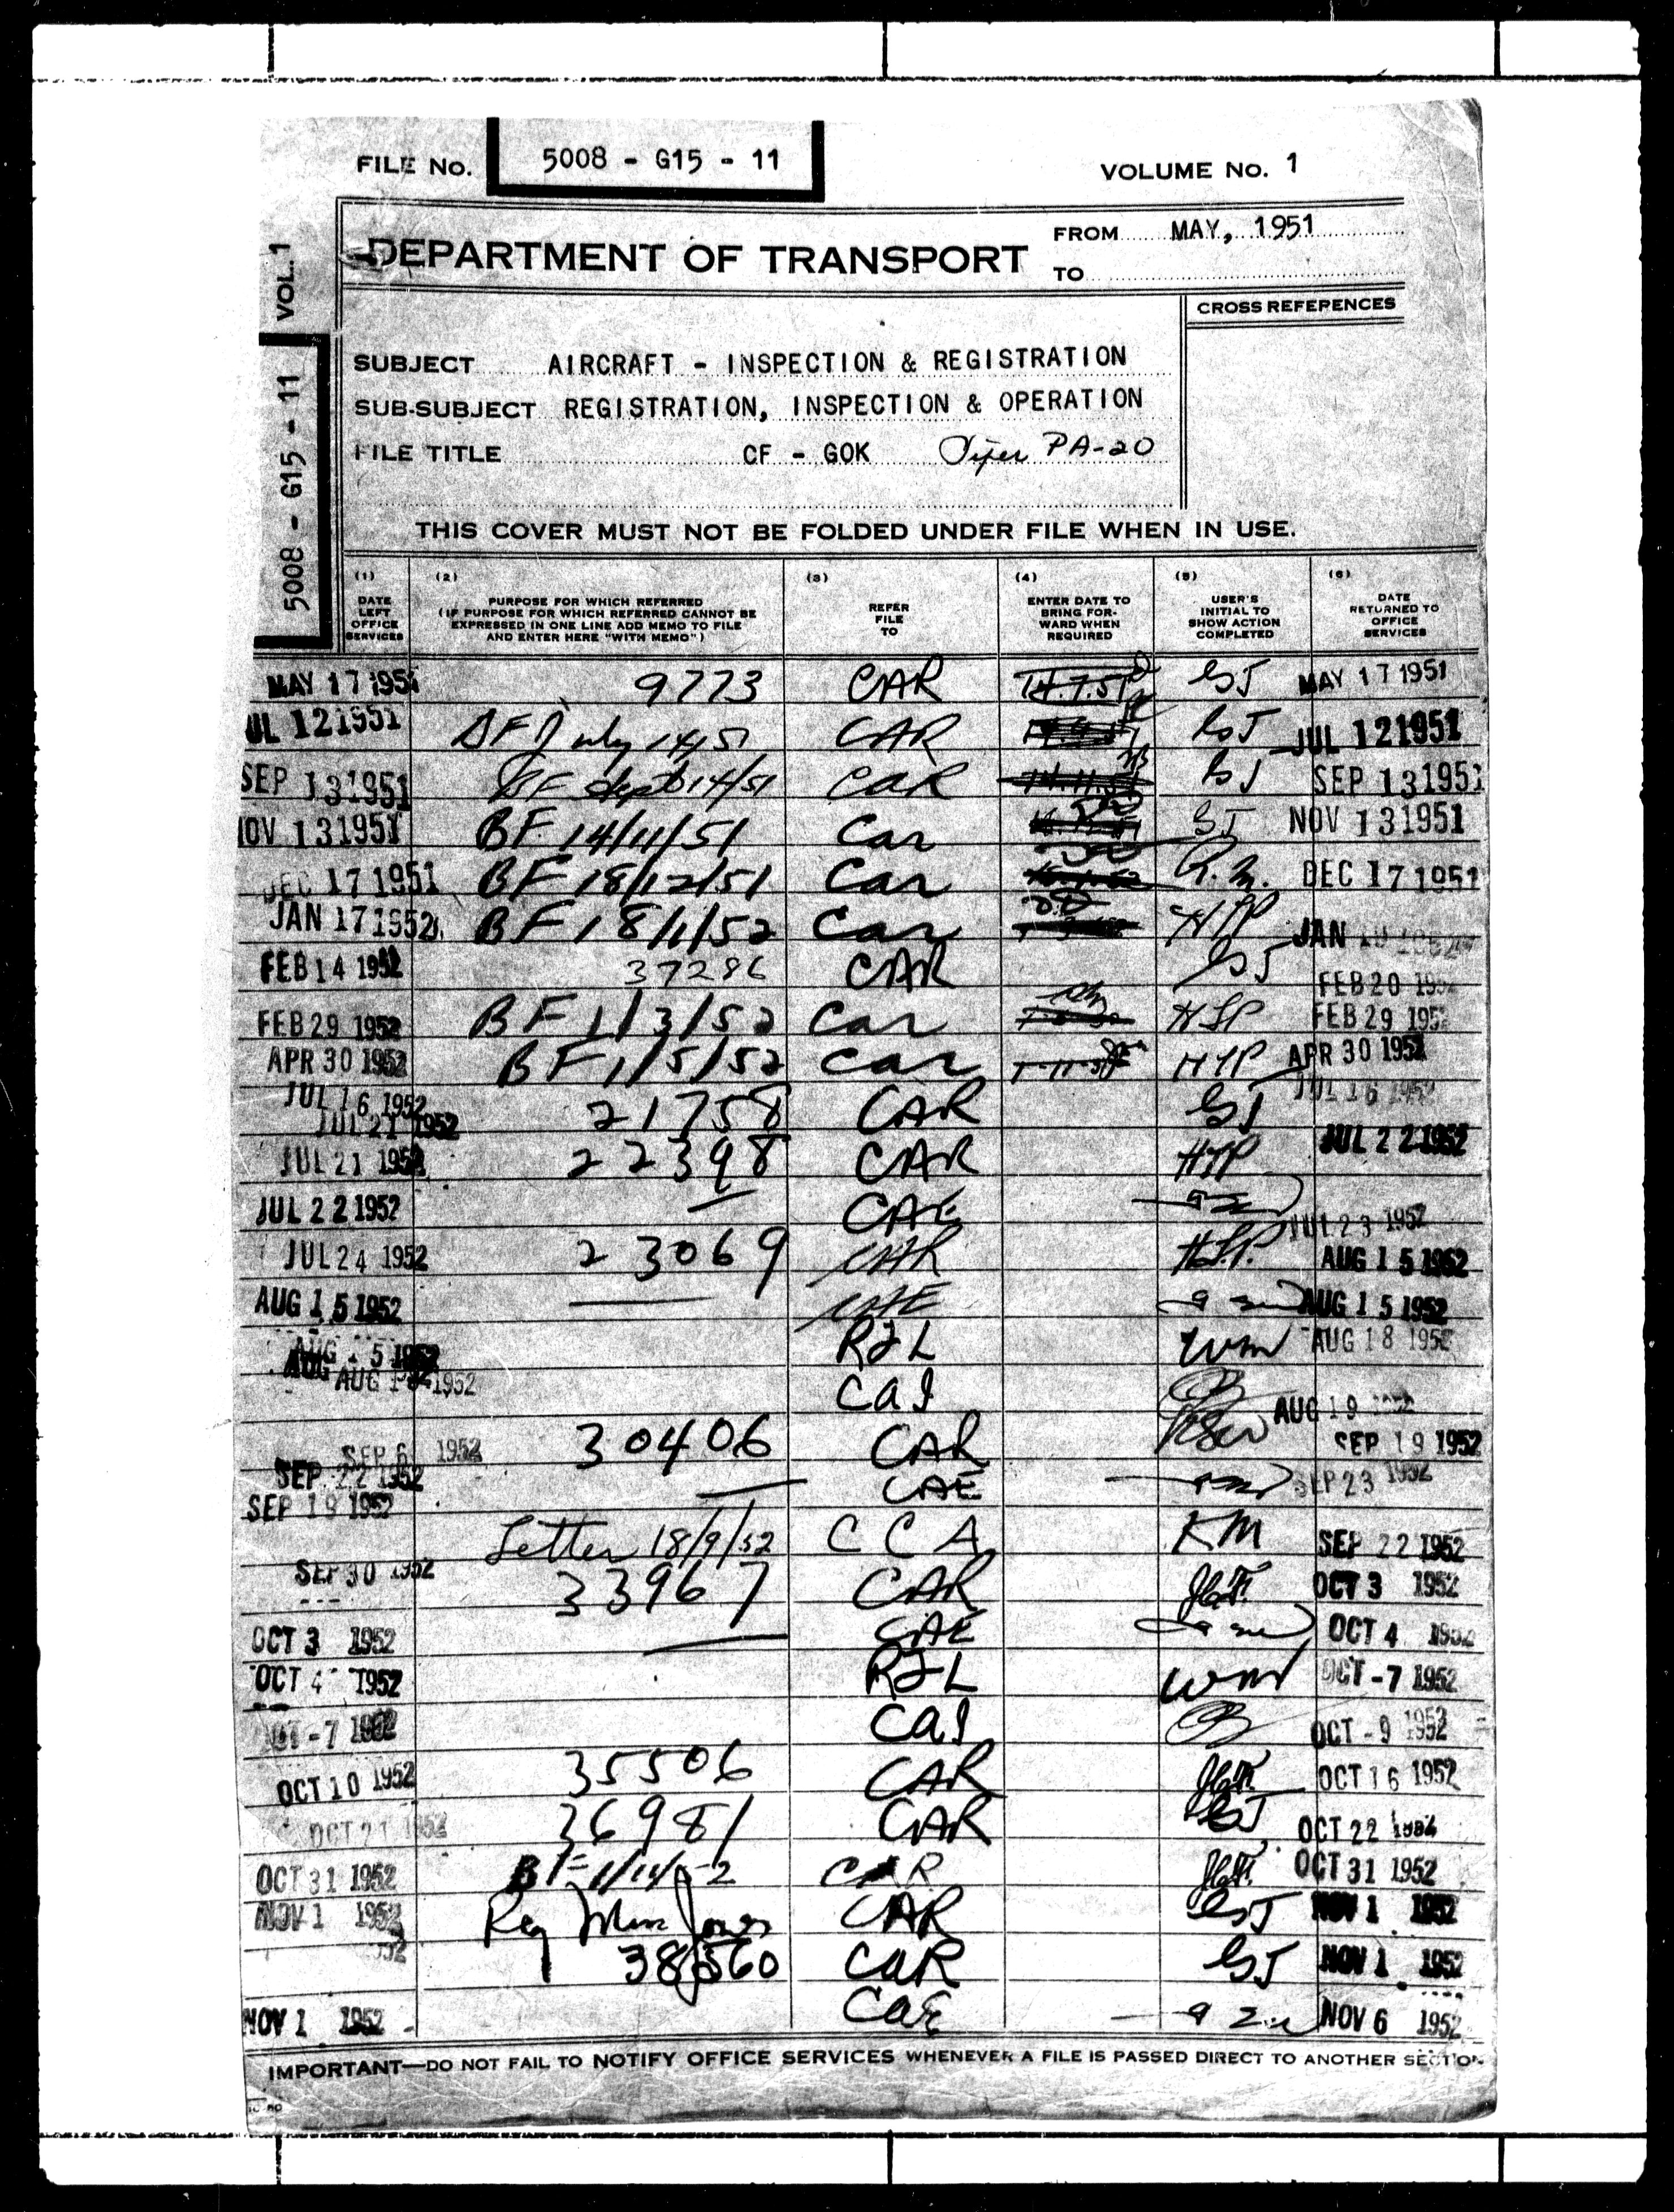 FILE No. 5008 - G15 - 11
VOLUME No. 1
VOL. 1
5008 - G15 - 11
DEPARTMENT OF TRANSPORT
FROM MAY, 1951
TO
CROSS REFERENCES
SUBJECT AIRCRAFT - INSPECTION & REGISTRATION
SUB-SUBJECT REGISTRATION, INSPECTION & OPERATION
FILE TITLE CF - GOK Piper PA-20
THIS COVER MUST NOT BE FOLDED UNDER FILE WHEN IN USE.
(1) DATE LEFT OFFICE SERVICES
(2) PURPOSE FOR WHICH REFERRED (IF PURPOSE FOR WHICH REFERRED CANNOT BE EXPRESSED IN ONE LINE ADD MEMO TO FILE AND ENTER HERE "WITH MEMO")
(3) REFER FILE TO
(4) ENTER DATE TO BRING FOR- WARD WHEN REQUIRED
(5) USER'S INITIAL TO SHOW ACTION COMPLETED
(6) DATE RETURNED TO OFFICE SERVICES
MAY 17 1951 9773 CAR 14.7.51 GJ MAY 17 1951
JUL 12 1951 BF July 14/51 CAR GJ JUL 12 1951
SEP 13 1951 BF Sept 14/51 CAR GJ SEP 13 1951
NOV 13 1951 BF 14/11/51 Car GJ NOV 13 1951
DEC 17 1951 BF 18/12/51 Car DEC 17 1951
JAN 17 1952 BF 18/1/52 Car JAN
FEB 14 1952 37286 CAR GJ FEB 20 1952
FEB 29 1952 BF 1/3/52 Car HSP FEB 29 1952
APR 30 1952 BF 1/5/52 Car APR 30 1952
JUL 16 1952 21758 CAR GJ JUL 16 1952
JUL 21 1952
JUL 21 1952 22398 CAR JUL 22 1952
JUL 22 1952 — CAE JUL 23 1952
JUL 24 1952 23069 CAR H.S.P. AUG 15 1952
AUG 15 1952 — CAE AUG 15 1952
AUG 15 1952 RJL WM AUG 18 1952
AUG 1952 CAI AUG 19
SEP 6 1952 30406 CAR SEP 19 1952
SEP 22 1952 — CAE SEP 23 1952
SEP 19 1952 Letter 18/9/52 CCA KM SEP 22 1952
SEP 30 1952 33967 CAR OCT 3 1952
OCT 3 1952 — CAE OCT 4 1952
OCT 4 1952 RJL WM OCT -7 1952
OCT -7 1952 CAI OCT -9 1952
OCT 10 1952 35506 CAR OCT 16 1952
OCT 21 1952 36981 CAR GJ OCT 22
OCT 31 1952 BF 1/11/52 CAR OCT 31 1952
NOV 1 1952 Req Miss Jones CAR GJ NOV 1 1952
38560 CAR GJ NOV 1 1952
NOV 1 1952 CAE NOV 6 1952
IMPORTANT—DO NOT FAIL TO NOTIFY OFFICE SERVICES WHENEVER A FILE IS PASSED DIRECT TO ANOTHER SECTION